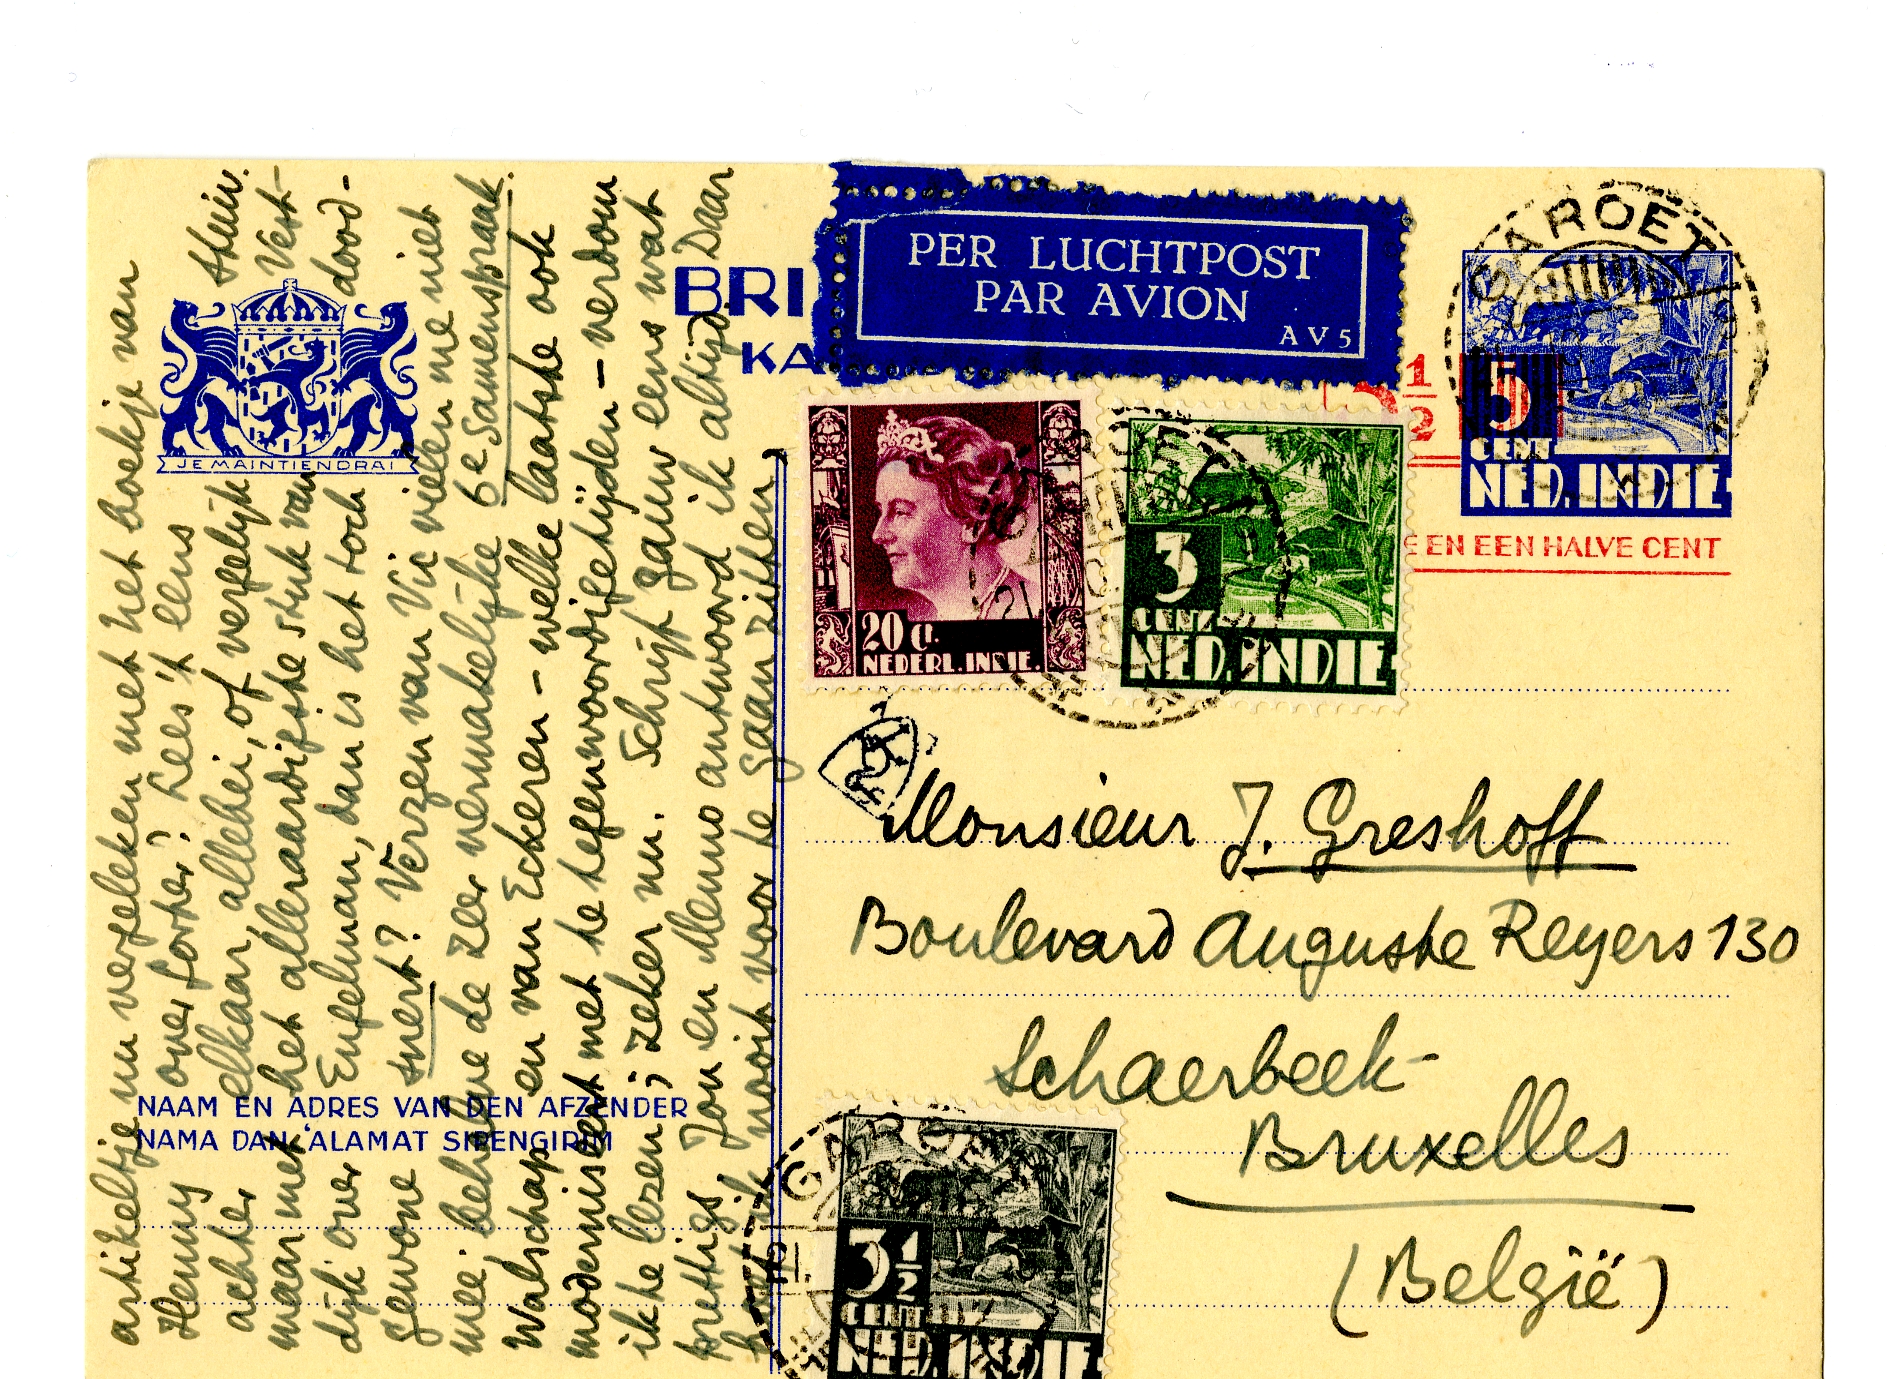 artikeltje nu vergeleken met het boekje van
Henny over Gorter? Lees 't eens
achter elkaar, allebei, of vergelijk Stuiv.
maar met het alleraardigste stuk van Vest-
dijk over Engelman, dan is het toch dood-
gewone snert? Verzen van Vic vielen me niet
mee; behalve de zeer vermakelijke 6e Samenspraak.
Walschap en van Eckeren – welke laatste ook
moderniseert met te tegenwoordigetijden – verdom
ik te lezen; zeker nu. Schrijf gauw eens wat
prettigs, Jou en Menno antwoord ik altijd. Daar
hoef ik nooit voor te gaan zitten
JE MAINTIENDRAI
NAAM EN ADRES VAN DEN AFZENDER
NAMA DAN 'ALAMAT SIPENGIRIM
BRI
KA
PER LUCHTPOST
PAR AVION
AV5
GAROET
1/2
5
CENT
NED. INDIE
E EN EEN HALVE CENT
20 ct.
NEDERL. INDIE.
3
CENT
NED. INDIE
GAROET
Monsieur J. Greshoff
Boulevard Auguste Reyers 130
Schaerbeek-
Bruxelles
(België)
GAROET
3 1/2
CENT
NED. INDIE